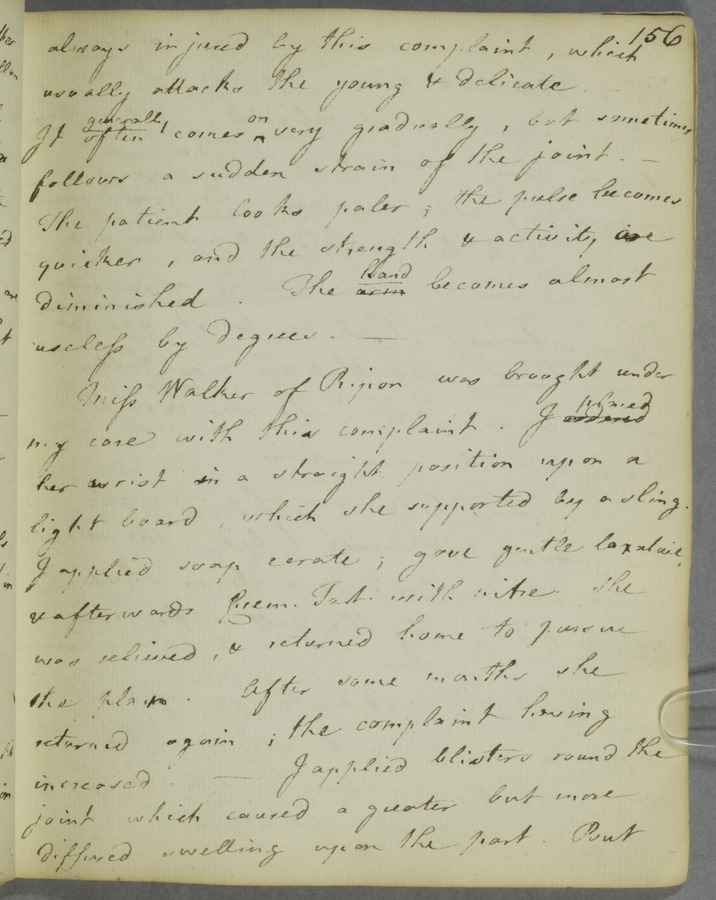 156
always injured by this complaint, which
usually attacks the young & delicate.
It often generally comes on very gradually, but sometimes
follows a sudden strain of the joint. —
The patient looks paler; the pulse becomes
quicker, and the strength & activity are
diminished. The arm hand becomes almost
useless by degrees. —
Miss Walker of Ripon was brought under
my care with this complaint. I placed
her wrist in a straight position upon a
light board, which she supported by a sling.
I applied soap cerate; gave gentle laxative,
& afterwards Tart. with nitre. She
was relieved, & returned home to pursue
the plan. After some months she
returned again; the complaint having
increased. — I applied blisters round the
joint which caused a greater but more
diffused swelling upon the part. But